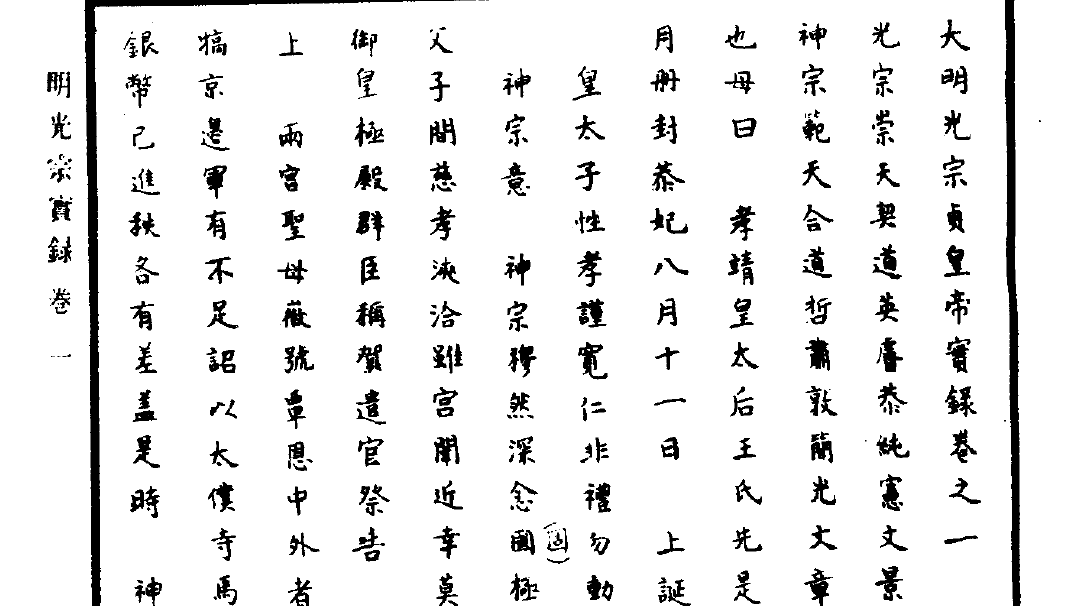 大明光宗貞皇帝實錄卷之一
光宗崇天契道英睿恭純憲文景
神宗範天合道哲肅敦簡光文章
也母曰　孝靖皇太后王氏先是
月冊封恭妃八月十一日　上誕
皇太子性孝謹寬仁非禮勿動
(國)
神宗意　神宗穆然深念國極
父子間慈孝浹洽雖宮闈近幸莫
御皇極殿群臣稱賀遣官祭告
上　兩宮聖母徽號覃恩中外者
犒京邊軍有不足詔以太僕寺馬
銀幣已進秩各有差蓋是時　神
明光宗實録　卷一